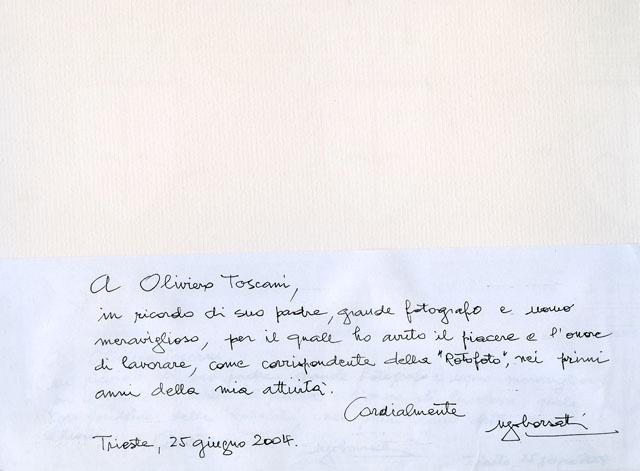 A Oliviero Toscani,
in ricordo di suo padre, grande fotografo e uomo
meraviglioso, per il quale ho avuto il piacere e l'onore
di lavorare, come corrispondente della "Rotofoto", nei primi
anni della mia attività.
Cordialmente
Ugo Borsatti
Trieste, 25 giugno 2004.